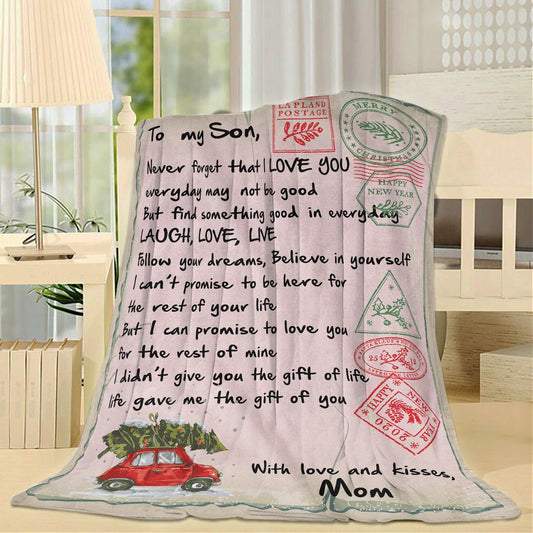 LAPLAND
POSTAGE
MERRY
CHRISTMAS
To my Son,
Never forget that I LOVE YOU
everyday may not be good
But find something good in everyday
LAUGH, LOVE, LIVE
Follow your dreams, Believe in yourself
I can't promise to be here for
the rest of your life
But I can promise to love you
for the rest of mine
I didn't give you the gift of life
life gave me the gift of you
With love and kisses,
Mom
HAPPY
NEW YEAR
25 12
HAPPY
NEW
YEAR
2020